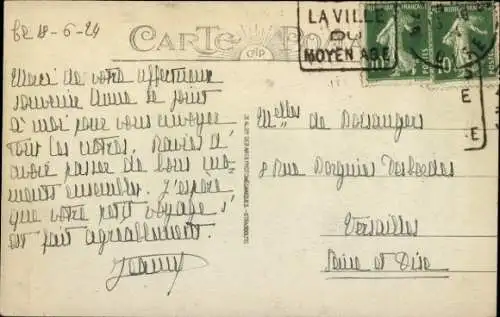 le 18-6-24
CARTE POSTALE
CAP
LA VILLE
DU
MOYEN AGE
Merci de votre affectueux
souvenir Anna se joint
à moi pour vous envoyer
tout les notres. Ravies d'
avoir passer de bons mo-
ments ensembles. J'espère
que votre petit voyage s'
est fait agréablement.
Melles de
8 Rue Borgnis Desbordes
Versailles
Seine et Oise